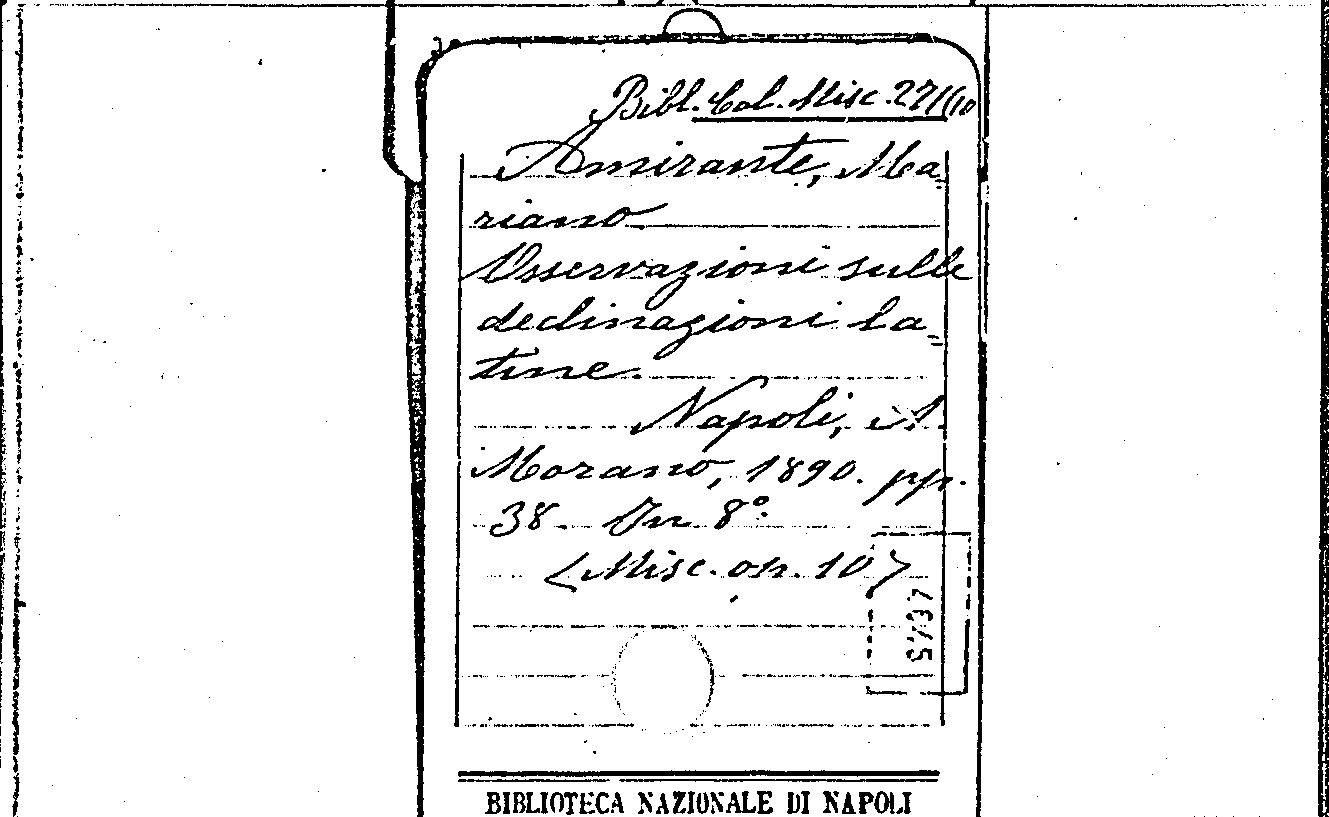 Bibl. Cal. Misc. 27/(10
Amirante, Ma=
riano
Osservazioni sulle
declinazioni la=
tine.
Napoli, A.
Morano, 1890. pp.
38. In 8°.
(Misc. op. 10)
BIBLIOTECA NAZIONALE DI NAPOLI